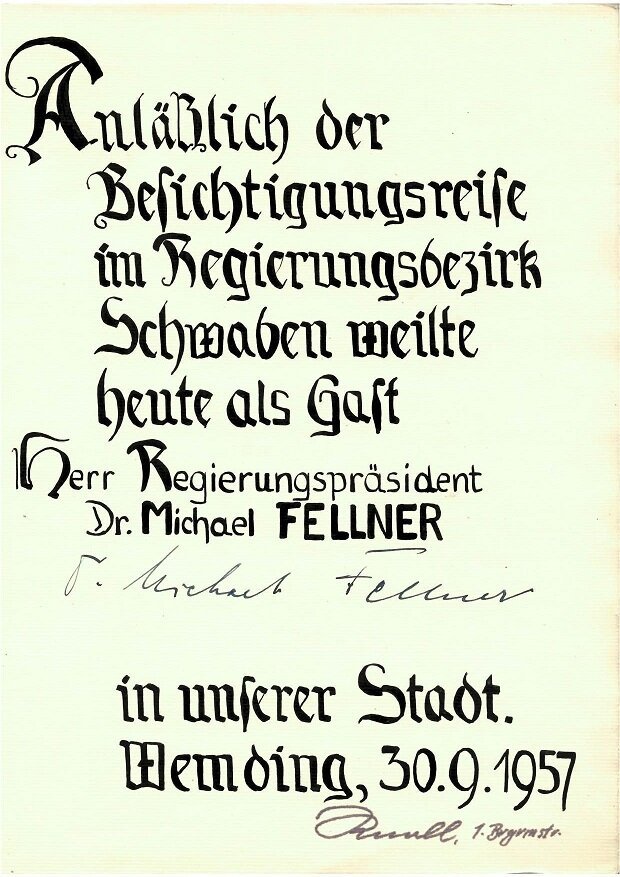 Anläßlich der
Beſichtigungsreiſe
im Regierungsbezirk
Schwaben weilte
heute als Gaſt
Herr Regierungspräsident
Dr. Michael FELLNER
Dr. Michael Fellner
in unſerer Stadt.
Wemding, 30.9.1957
1. Brgrmstr.